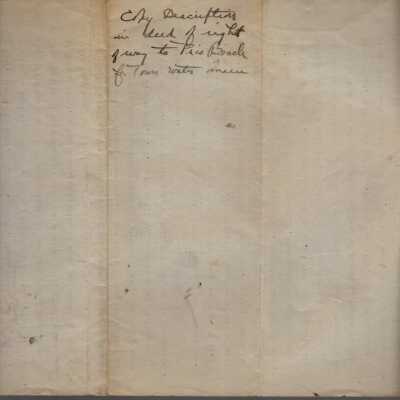 Copy Description
in deed of right
of way to Pico Beach
for Town water main